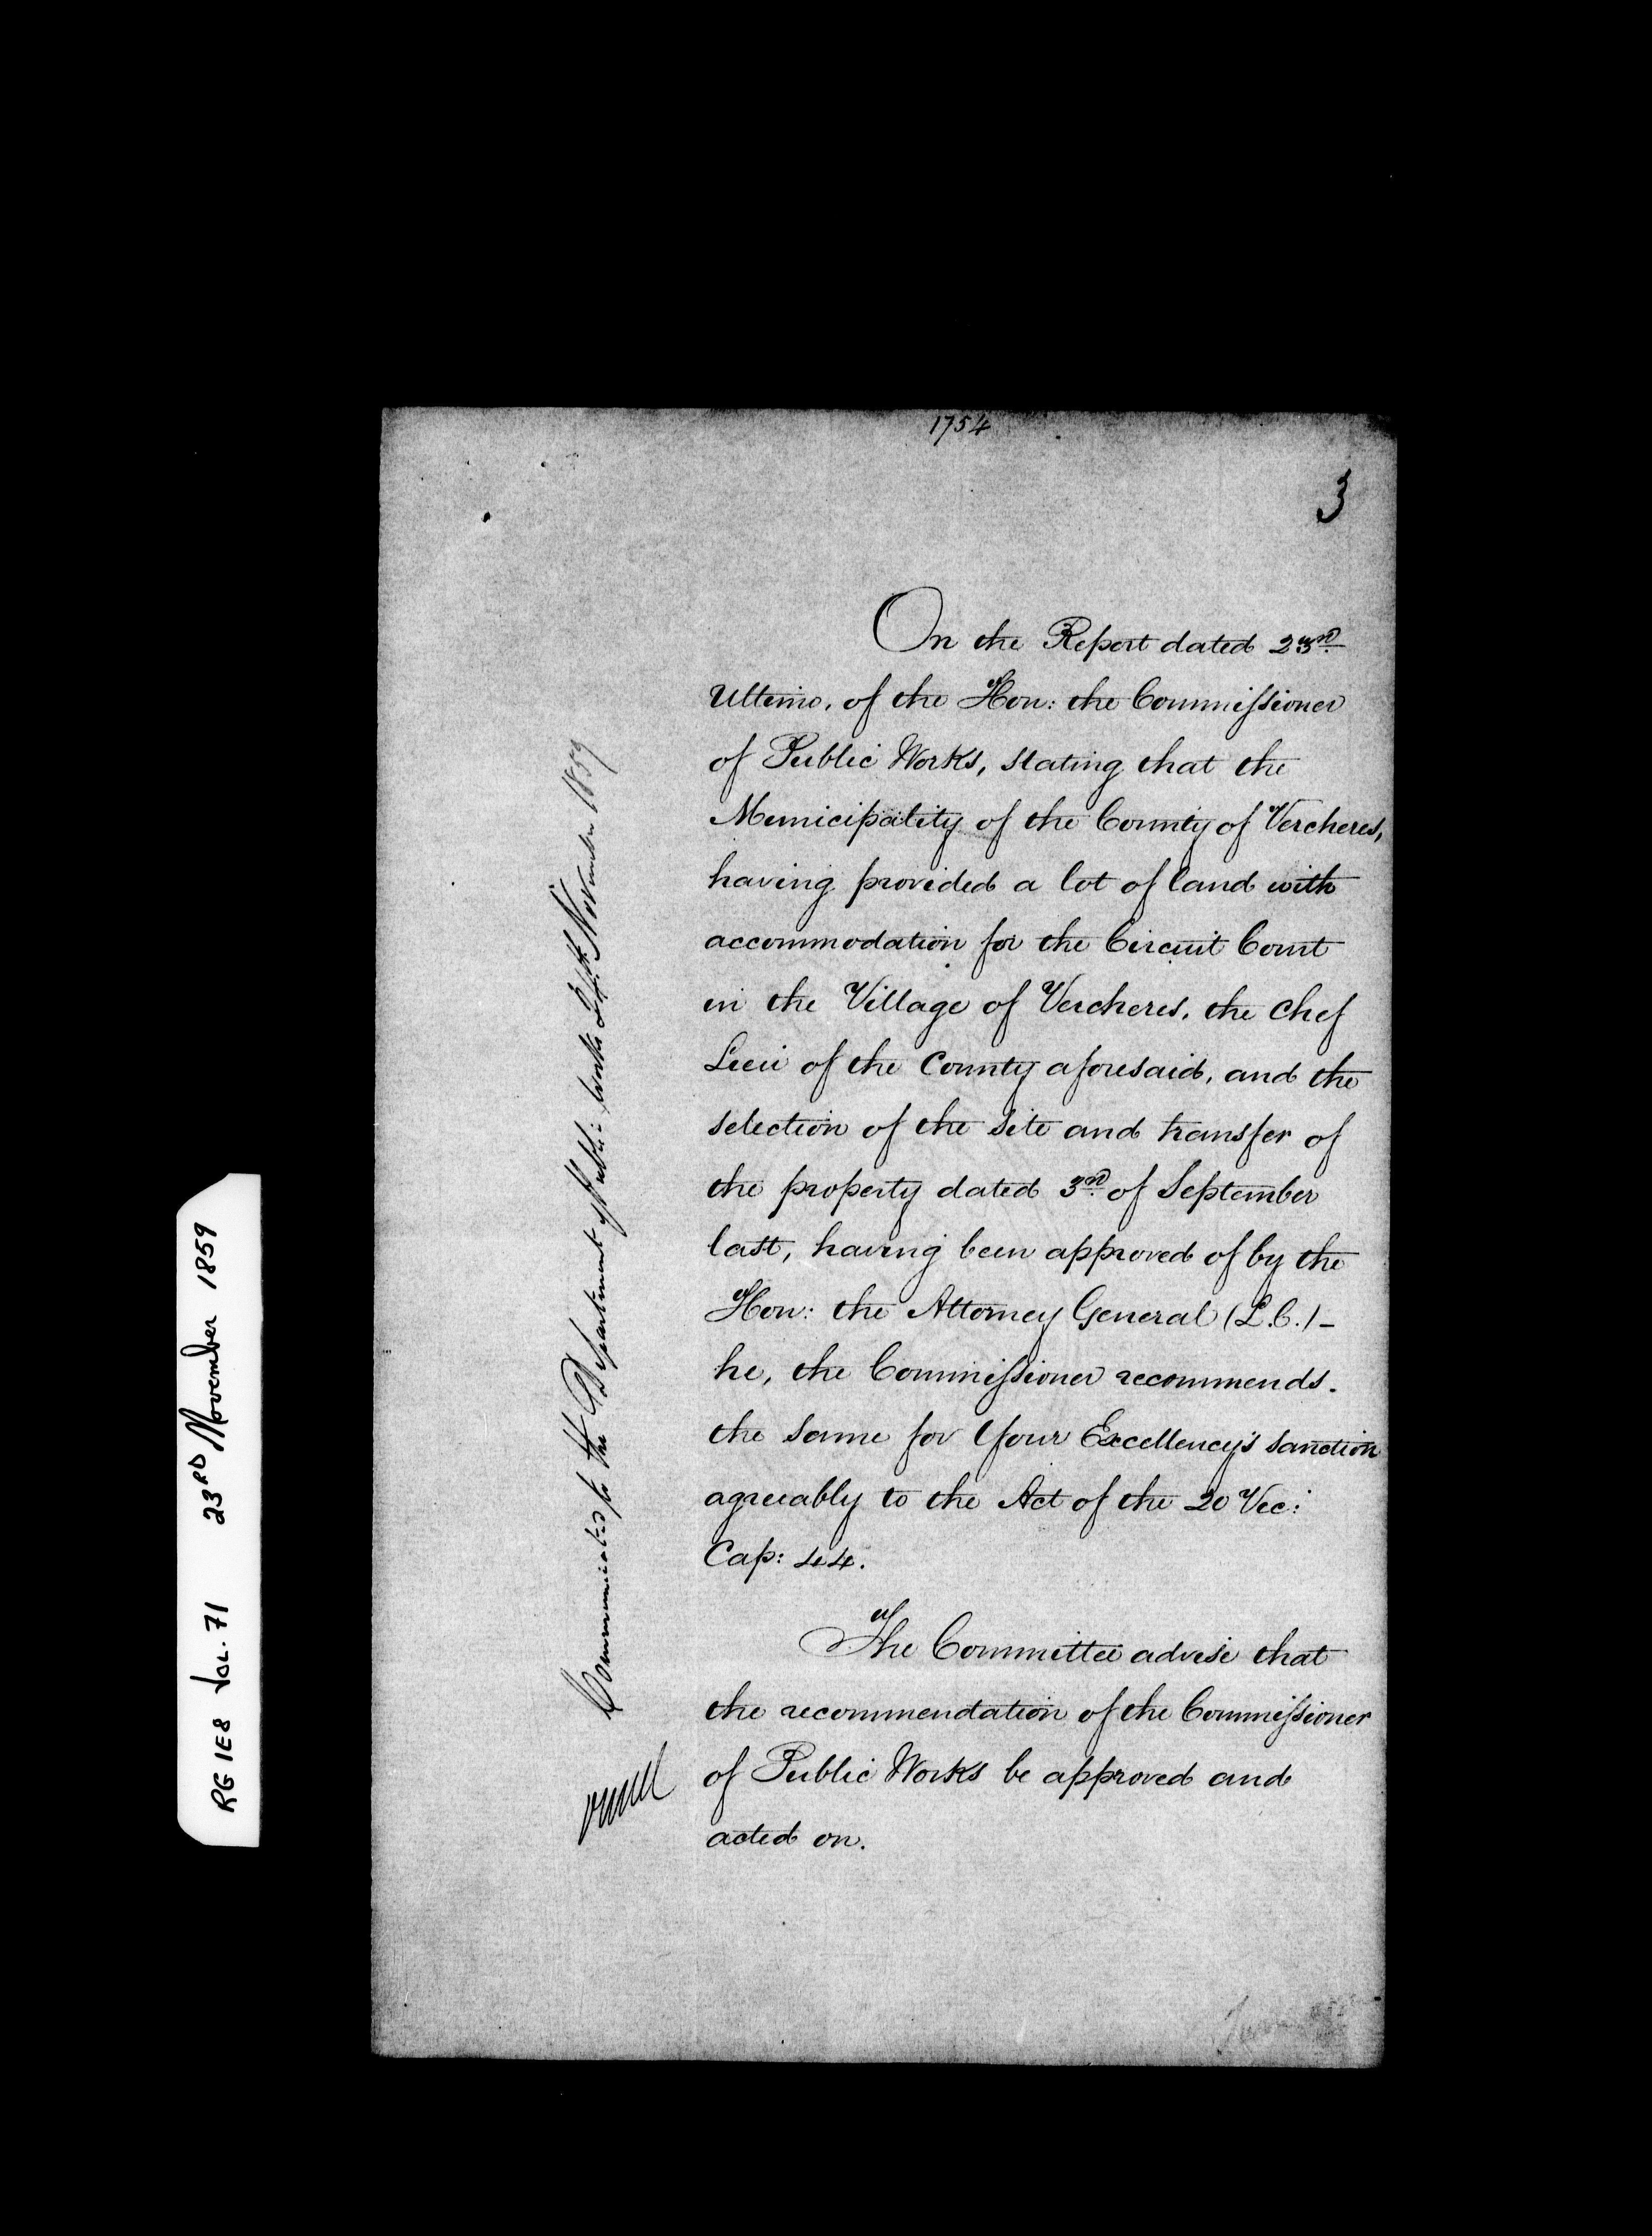 1754
3
On the Report dated 23rd
Ultimo, of the Hon: the Commissioner
of Public Works, stating that the
Municipality of the County of Vercheres,
having provided a lot of land with
accommodation for the Circuit Court
in the Village of Vercheres, the Chef
Lieu of the County aforesaid, and the
selection of the site and transfer of
the property dated 3rd of September
last, having been approved of by the
Hon: the Attorney General (L.C.) -
he, the Commissioner recommends.
the same for Your Excellency's sanction
agreeably to the Act of the 20 Vic:
Cap: 44.
The Committee advise that
the recommendation of the Commissioner
of Public Works be approved and
acted on.
Communicated to the Department of Public Works November 1859
RG 1E8 Vol. 71 23RD November 1859